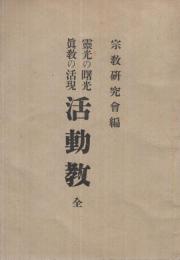 宗教研究會編
靈光の曙光
眞教の活現
活動教
全